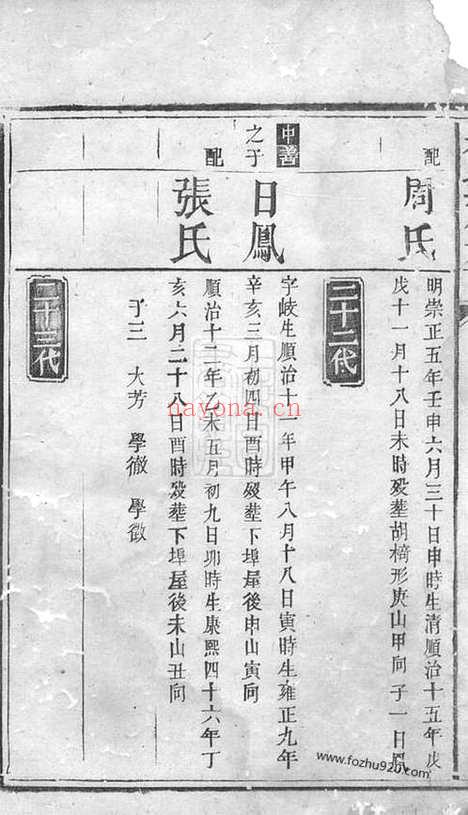 配
周氏
明崇正五年壬申六月三十日申時生清順治十五年戊
戌十一月十八日未時殁葬胡椅形庚山甲向子一日鳳
二十二代
中善
之子
日鳳
字岐生順治十一年甲午八月十八日寅時生雍正九年
辛亥三月初四日酉時殁葬下埠屋後申山寅向
配
張氏
順治十二年乙未五月初九日卯時生康熙四十六年丁
亥六月二十八日酉時殁葬下埠屋後未山丑向
子三 大芳 學徽 學徵
二十三代
nayona.cn
www.fozhu920.com